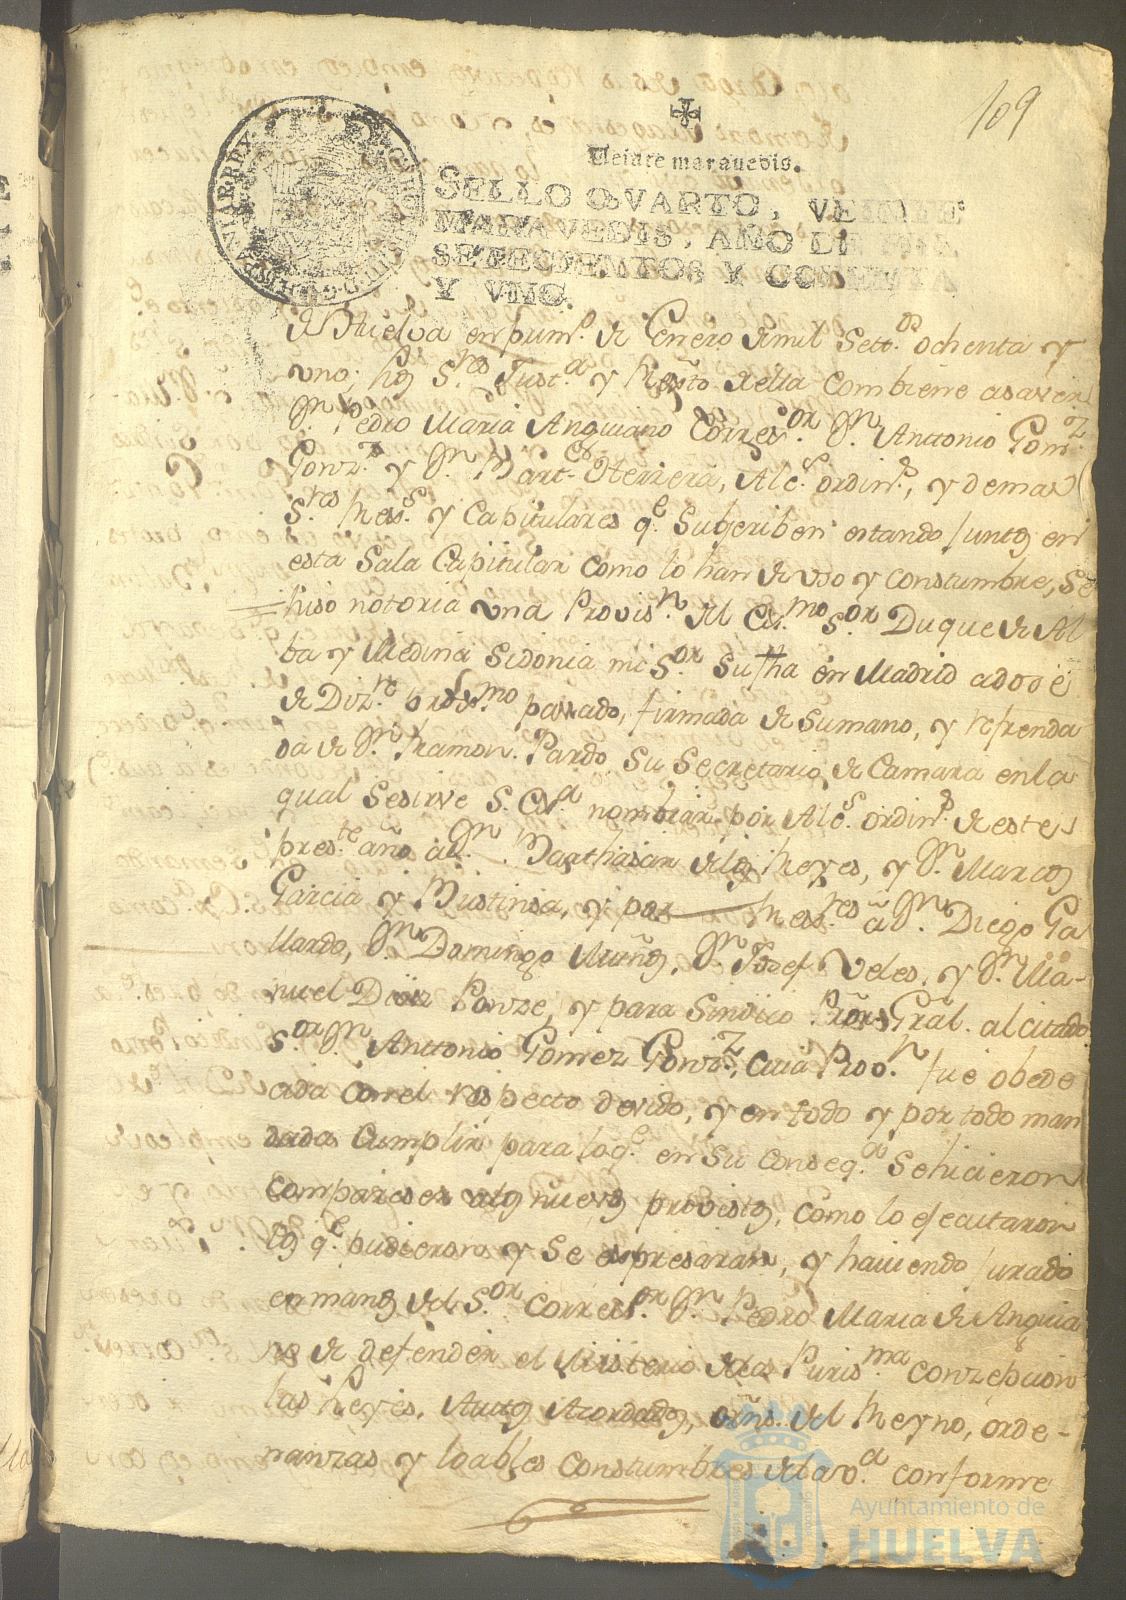 109
Veinte maravedis.
SELLO QVARTO, VEINTE
MARAVEDIS, AÑO DE MIL
SETECIENTOS Y OCHENTA
Y VNO.
Huelva en prim.º de Enero de mil Sett.os ochenta y
uno; los S.res Just.a y Reximto de ella combiene a saver
D.n Pedro Maria Anguiano Correx.or D.n Anttonio Gom.z
Gonz.z y D.n Herrera, Alc.s ordin.s, y demas
S.res Rex.s y Capitulares q.e Subscriben estando juntos en
esta Sala Capitular como lo han de uso y constumbre, se
hiso notoria una Provis.n del Ex.mo S.or Duque de Al
ba y Medina Sidonia mi S.or su fha en Madrid a dose
de Diz.re prox.mo pasado, firmada de su mano, y refrenda
da de D.n Ramon Pardo su Secretario de Camara en la
qual se sirve S. Ex.a nombrar por Alc.s ordin.s de este
pres.te año a D.n Balthasar de los Reyes, y D.n Marcos
Garcia y Bustinsa, y por Rex.res á D.n Diego Ga
llardo, D.n Domingo Muños, D.n Josef Veles, y D.n Ma-
nuel Dias Ponze, y para Sindico Pror Gral. al citado
S.or D.n Anttonio Gomez Gonz.z, cuia Pro.n fue obede
cida con el respecto devido, y en todo y por todo man
dada Cumplir para lo q.e en su conseq.a se hicieron
compareser a los nuevos provistos, como lo ejecutaron
los q.e pudieron y se expresaran, y haviendo jurado
en manos del S.or Correx.or D.n Pedro Maria de Anguia
no de defender el Misterio de la Puris.ma conzepcion
las Leyes, Autos Acordados, del Reyno, orde-
nanzas y loables constumbres de la v.a conforme
Ayuntamiento de
HUELVA